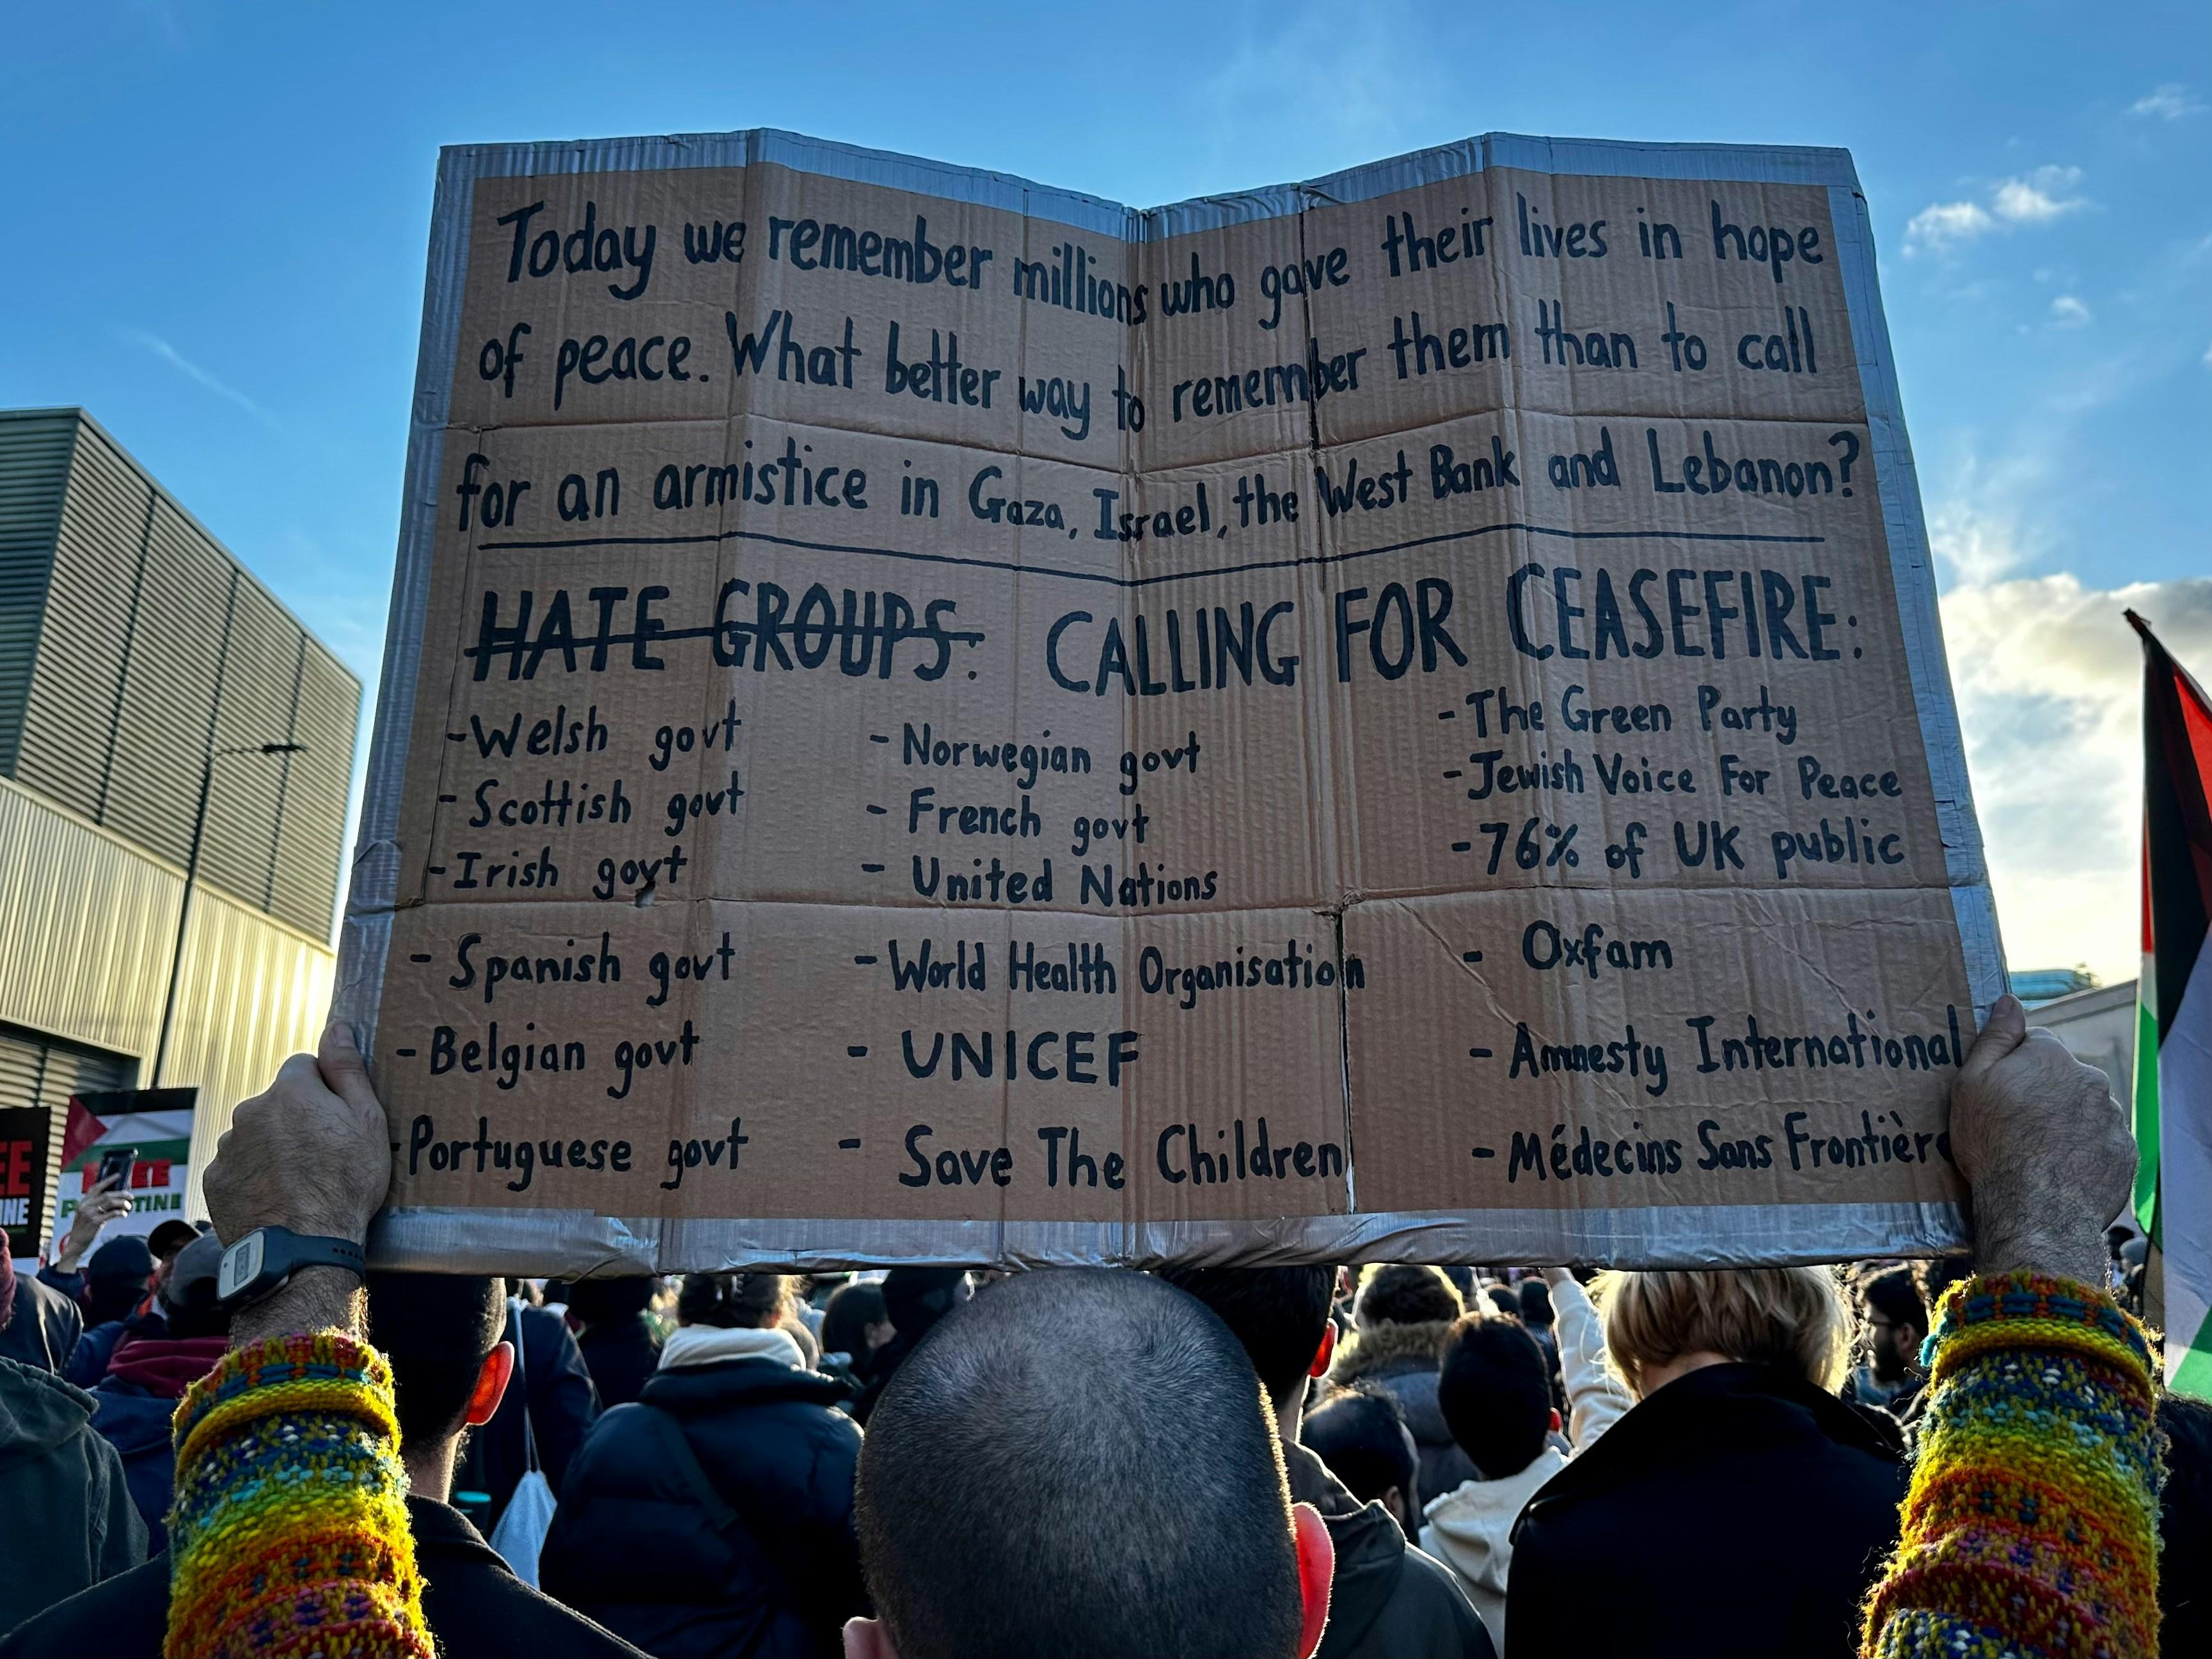 Today we remember millions who gave their lives in hope
of peace. What better way to remember them than to call
for an armistice in Gaza, Israel, the West Bank and Lebanon?
HATE GROUPS: CALLING FOR CEASEFIRE:
-Welsh govt
-Scottish govt
-Irish govt
- Spanish govt
-Belgian govt
-Portuguese govt
-Norwegian govt
- French govt
- United Nations
-World Health Organisation
- UNICEF
- Save The Children
-The Green Party
-Jewish Voice For Peace
-76% of UK public
- Oxfam
- Amnesty International
-Médecins Sans Frontièr